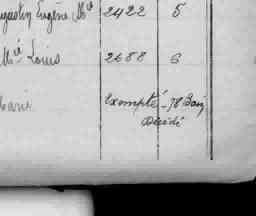 Augustin Eugène Mie 2422 5
Mie Louis 2688 6
Marie Exempté - 78
Décédé